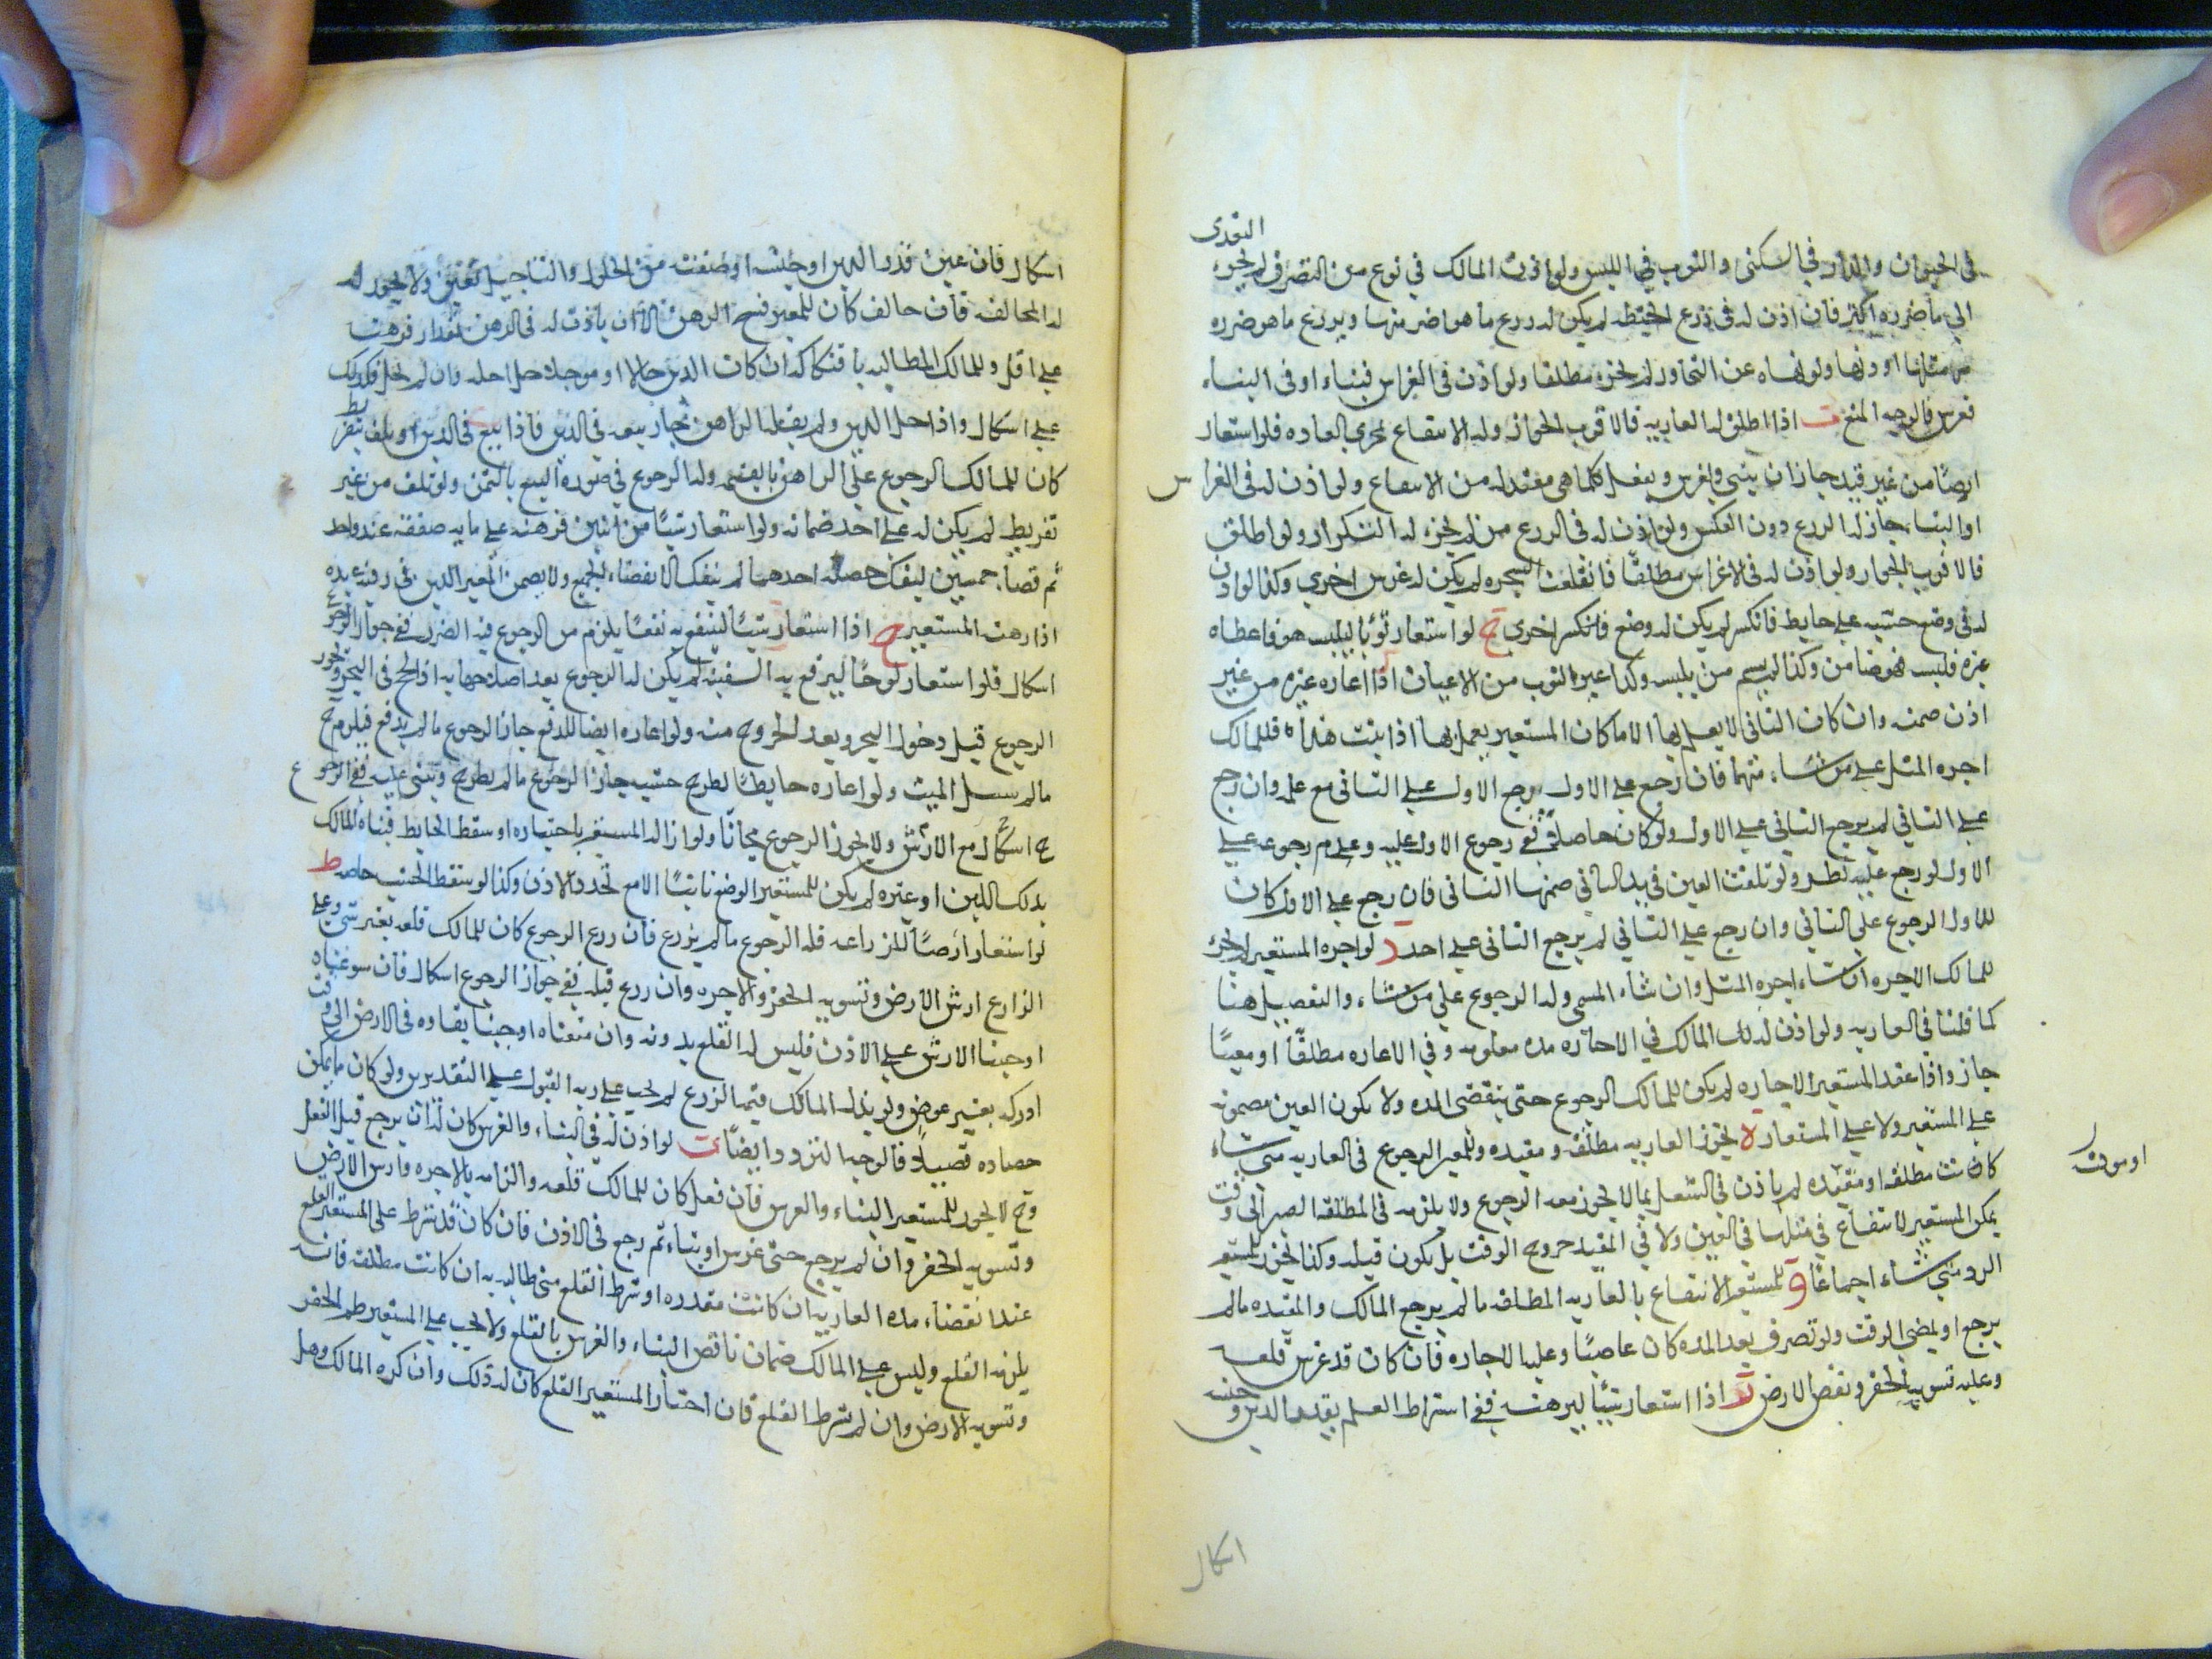 التعدى
فى الحيوان والدار في السكنى والثوب في اللبس ولو اذن المالك في نوع من التصرف لم يجز
الى ما ضرره اكثر فان اذن له فى زرع الحنطه لم يكن له زرع ما هو اضر منها ويزرع ما هو ضرره
مثلها او دونها ولو نهاه عن التجاوز لم يجزه مطلقا ولو اذن فى الغراس فبناء او فى البناء
فغرس فالوجه المنع ب اذا اطلق له العاريه فالاقرب الجواز وله الانتفاع بمجرى العاده فلو استعار
ارضًا من غير قيد جاز ان يبنى ويغرس ويفعل كلما هى معتد له من الانتفاع ولو اذن له فى الغراس
او البناء جاز له الزرع دون العكس ولو اذن له فى الزرع من لم يجز له التكرار ولو اطلق
فالاقرب الجواز ولو اذن له فى الاغراس مطلقًا فانقلعت الشجره لم يكن له غرس اخرى وكذا لو اذن
له فى وضع خشبه على حايط فانكسر لم يكن له وضع اخرى ج لو استعار ثوبًا ليلبسه هو فاعطاه
غيره فلبسه فهو ضامن وكذا لو لم يسم من يلبسه وكذا غير الثوب من الاعيان اذا اعاره غيره من غير
اذن ضمنه وان كان الثانى لا يعمل بها الا ما كان المستعير يعمل بها اذا ثبت هذا فللمالك
اجره المثل على من شاء منهما فان رجع على الاول رجع الاول على الثانى مع علمه وان رجع
على الثاني لم يرجع الثاني على الاول ولو كان جاهلا ففى رجوع الاول عليه وعدم رجوعه على
الاول لو رجع عليه نظر ولو تلفت العين في يد الثاني ضمنها الثانى فان رجع على الاول كان
للاول الرجوع على الثاني وان رجع على الثاني لم يرجع الثانى على احد د لو اجره المستعير لم يجز
للمالك الاجره ان شاء اجره المثل وان شاء المسمى وله الرجوع على من شاء والتفصيل هنا
كما قلنا في العاريه ولو اذن له المالك في الاجاره مده معلومه وفي الاعاره مطلقًا او معينًا
جاز واذا عقد المستعير الاجاره لم يكن للمالك الرجوع حتى ينقضى المده ولا يكون العين مضمونه
على المستعير ولا على المستعار ه يجوز العاريه مطلقه ومقيده وللمعير الرجوع فى العاريه متى شاء
كانت مطلقه او مقيده لم ياذن في الشغل بما لا يجوز معه الرجوع ولا يلزمه فى المطلقه الصبر الى وقت
او موقت
يمكن المستعير الانتفاع في مثلها في العين ولا في المقيده خروج الوقت بل يكون قبله وكذا يجوز للمستعير
الرد متى شاء اجماعًا و للمستعير الانتفاع بالعاريه المطلقه ما لم يرجع المالك والمقيده ما لم
يرجع او يمضى الوقت ولو تصرف بعد المده كان عاصيًا وعليه الاجاره فان كان قد غرس قلعه
وعليه تسويه الحفر ونقص الارض ز اذا استعار شيئًا ليرهنه ففى اشتراط العلم بقدر الدين وجنسه
اشكال
اشكال فان عين قدر الدين او جنسه او صفته من الحلول والتاجيل تعين ولا يجوز له
له المخالفه فان خالف كان للمعير فسخ الرهن الا ان ياذن له فى الرهن بمقدار فرهنه
على اقل وللمالك المطالبه بافتكاكه ان كان الدين حالا او موجلا حل اجله وان لم يحل فكذلك
على اشكال واذا حل الدين ولم يفعل الراهن جاز بيعه فى الدين فاذا بيع فى الدين او تلف بتفريط
كان للمالك الرجوع على الراهن بالقيمه وله الرجوع في صوره البيع بالثمن ولو تلف من غير
تفريط لم يكن له على احد ضمانه ولو استعار شيئًا من اثنين فرهنه على مايه صفقه عند واحد
ثم قضا خمسين ليفك حصه احدهما لم ينفك الا بقضاء الجميع ولا يضمن المعير الدين فى رقبه عبده
اذا رهنه المستعير ح اذا استعار شيئًا لينتفع به نفعًا يلزم من الرجوع فيه الضرر ففى جواز الرجوع
اشكال فلو استعار لوحًا ليرقع به السفينه لم يكن له الرجوع بعد اصلاحها به اذا لج فى البحر ويجوز
الرجوع قبل دخول البحر وبعد الخروج منه ولو اعاره ارضا للدفن جاز الرجوع ما لم يدفن فيلزم ح
ما لم يبل الميت ولو اعاره حايطًا لطرح خشب جاز الرجوع ما لم يطرح ويبنى عليه ففى الرجوع
ح اشكال مع الارش ولا يجوز الرجوع مجانًا ولو ازاله المستعير باختياره او سقط الحايط فبناه المالك
بذلك اللبن او غيره لم يكن للمستعير الوضع ثانيًا الا مع تجدد الاذن وكذا لو سقط الخشب خاصه ط
لو استعار ارضًا للزراعه فله الرجوع ما لم يزرع فان زرع الرجوع كان للمالك قلعه بغير شى وعلى
الزارع ارش الارض وتسويه الحفر والاجره وان زرع قبله ففى جواز الرجوع اشكال فان سوغناه
اوجبنا الارش على الاذن فليس له القلع بدونه وان منعناه اوجبنا بقاوه فى الارض الى وقت
ادراكه بغير عوض ولو بذل المالك قيمه الزرع لم يجب على ربه القبول على التقديرين ولو كان ما يمكن
حصاده قصيلا فالوجه التردد ايضًا ى لو اذن له في البناء والغرس كان له ان يرجع قبل الفعل
وح لا يجوز للمستعير البناء والغرس فان فعل كان للمالك قلعه والزامه بالاجره وارش الارض
وتسويه الحفر وان لم يرجع حتى غرس او بناء ثم رجع فى الاذن فان كان قد شرط على المستعير القلع
عند انقضاء مده العاريه ان كانت مقدره او شرط القلع متى طالبه به ان كانت مطلقه فانه
يلزمه القلع وليس على المالك ضمان نقص البناء والغرس بالقلع ولا يجب على المستعير طم الحفر
وتسويه الارض وان لم يشرط القلع فان اختار المستعير القلع كان له ذلك وان كره المالك وهل